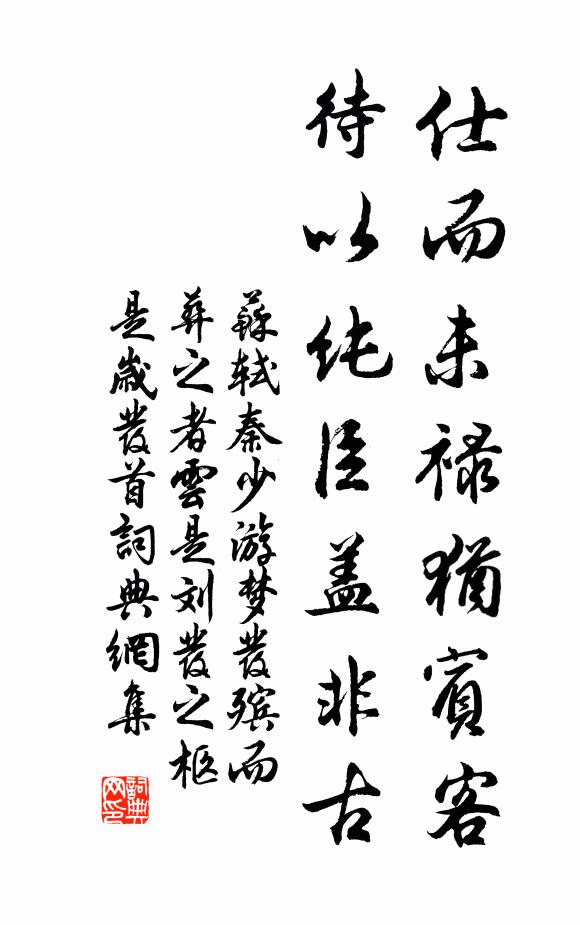 仕而未禄猶賓客
待以纯臣盖非古
蘇軾秦少游梦發殡而
葬之者雲是刘發之柩
是歲發首詞典網集
詞典网印